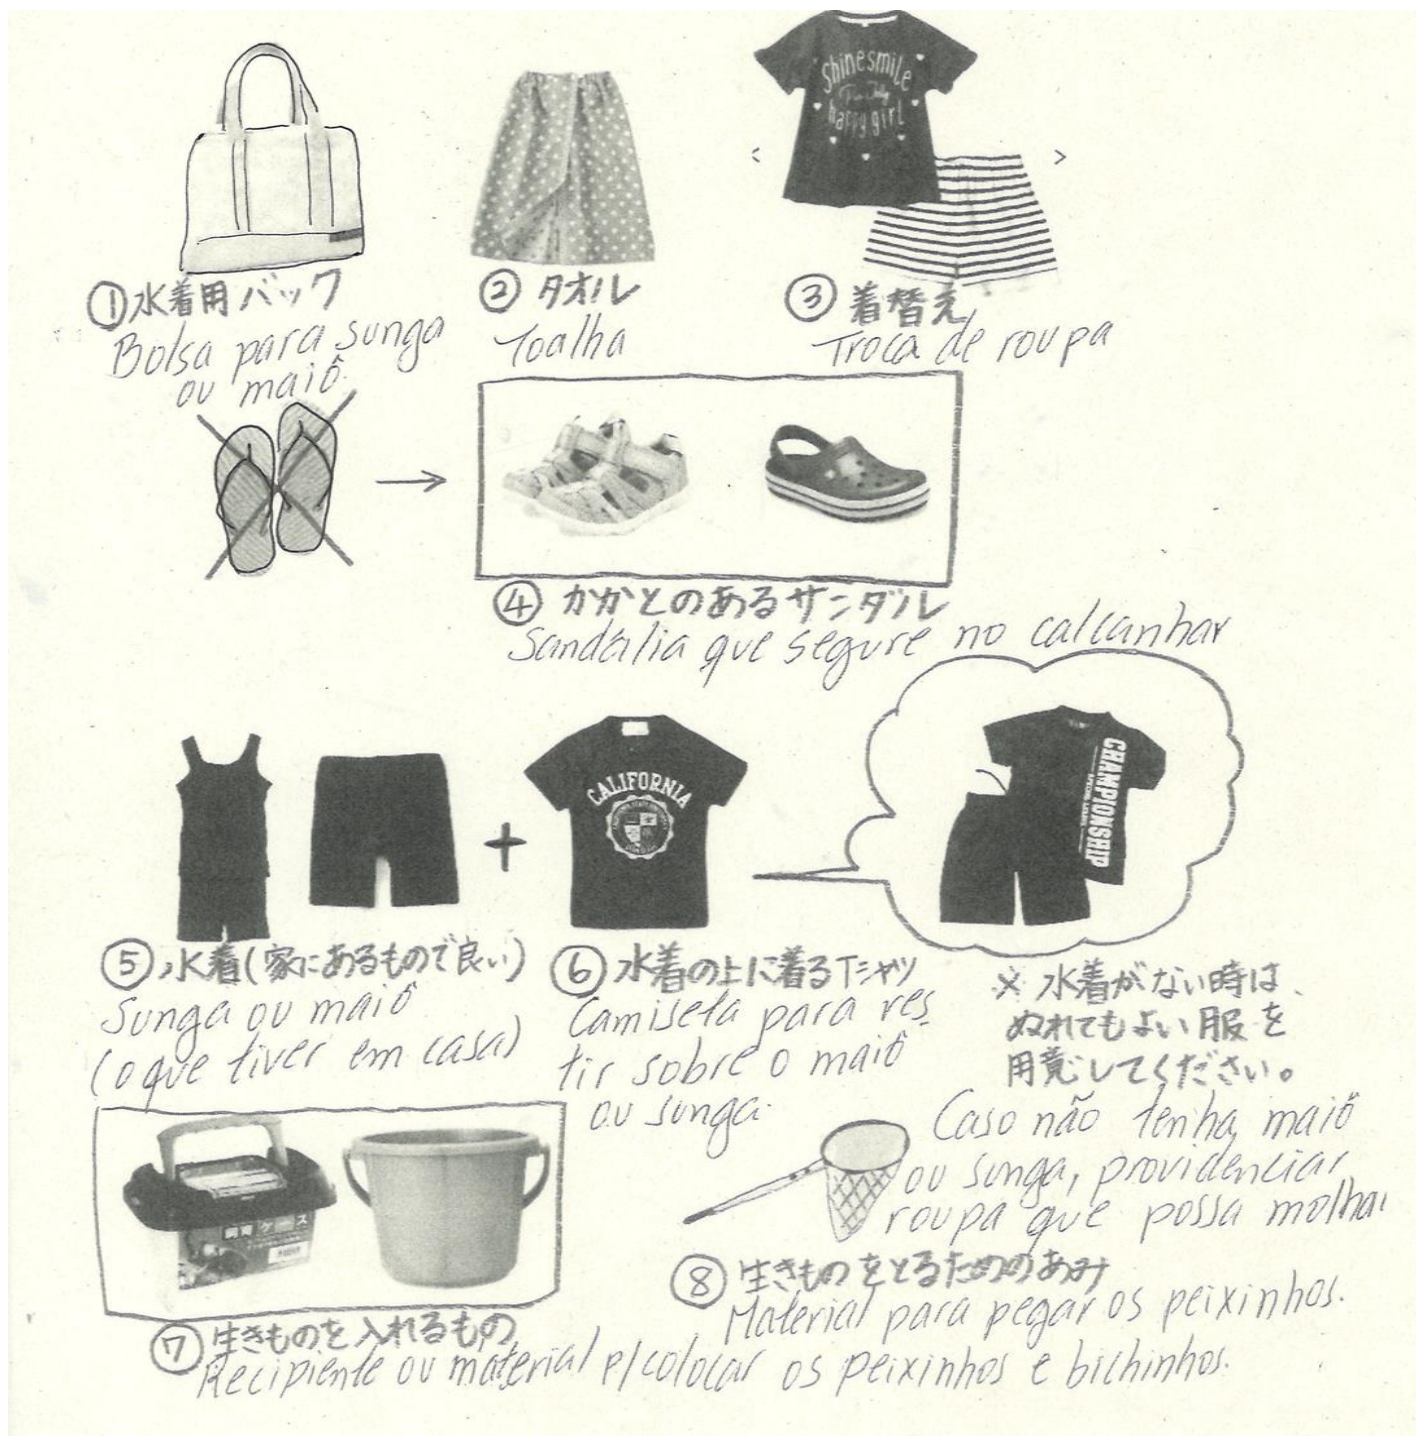 Shinesmile
happy girl
①水着用バック
Bolsa para sunga
ou maiô.
②タオル
Toalha
③着替え
Troca de roupa
④かかとのあるサンダル
Sandália que segure no calcanhar
CALIFORNIA
CHAMPIONSHIP
⑤水着(家にあるもので良い)
Sunga ou maiô
(o que tiver em casa)
⑥水着の上に着るTシャツ
Camiseta para ves_
tir sobre o maiô
ou sunga.
※水着がない時は、
ぬれてもよい服を
用意してください。
Caso não tenha maiô
ou sunga, providenciar
roupa que possa molhar
飼育ケース
⑦生きものを入れるもの
Recipiente ou material p/colocar os peixinhos e bichinhos.
⑧生きものをとるためのあみ
Material para pegar os peixinhos.